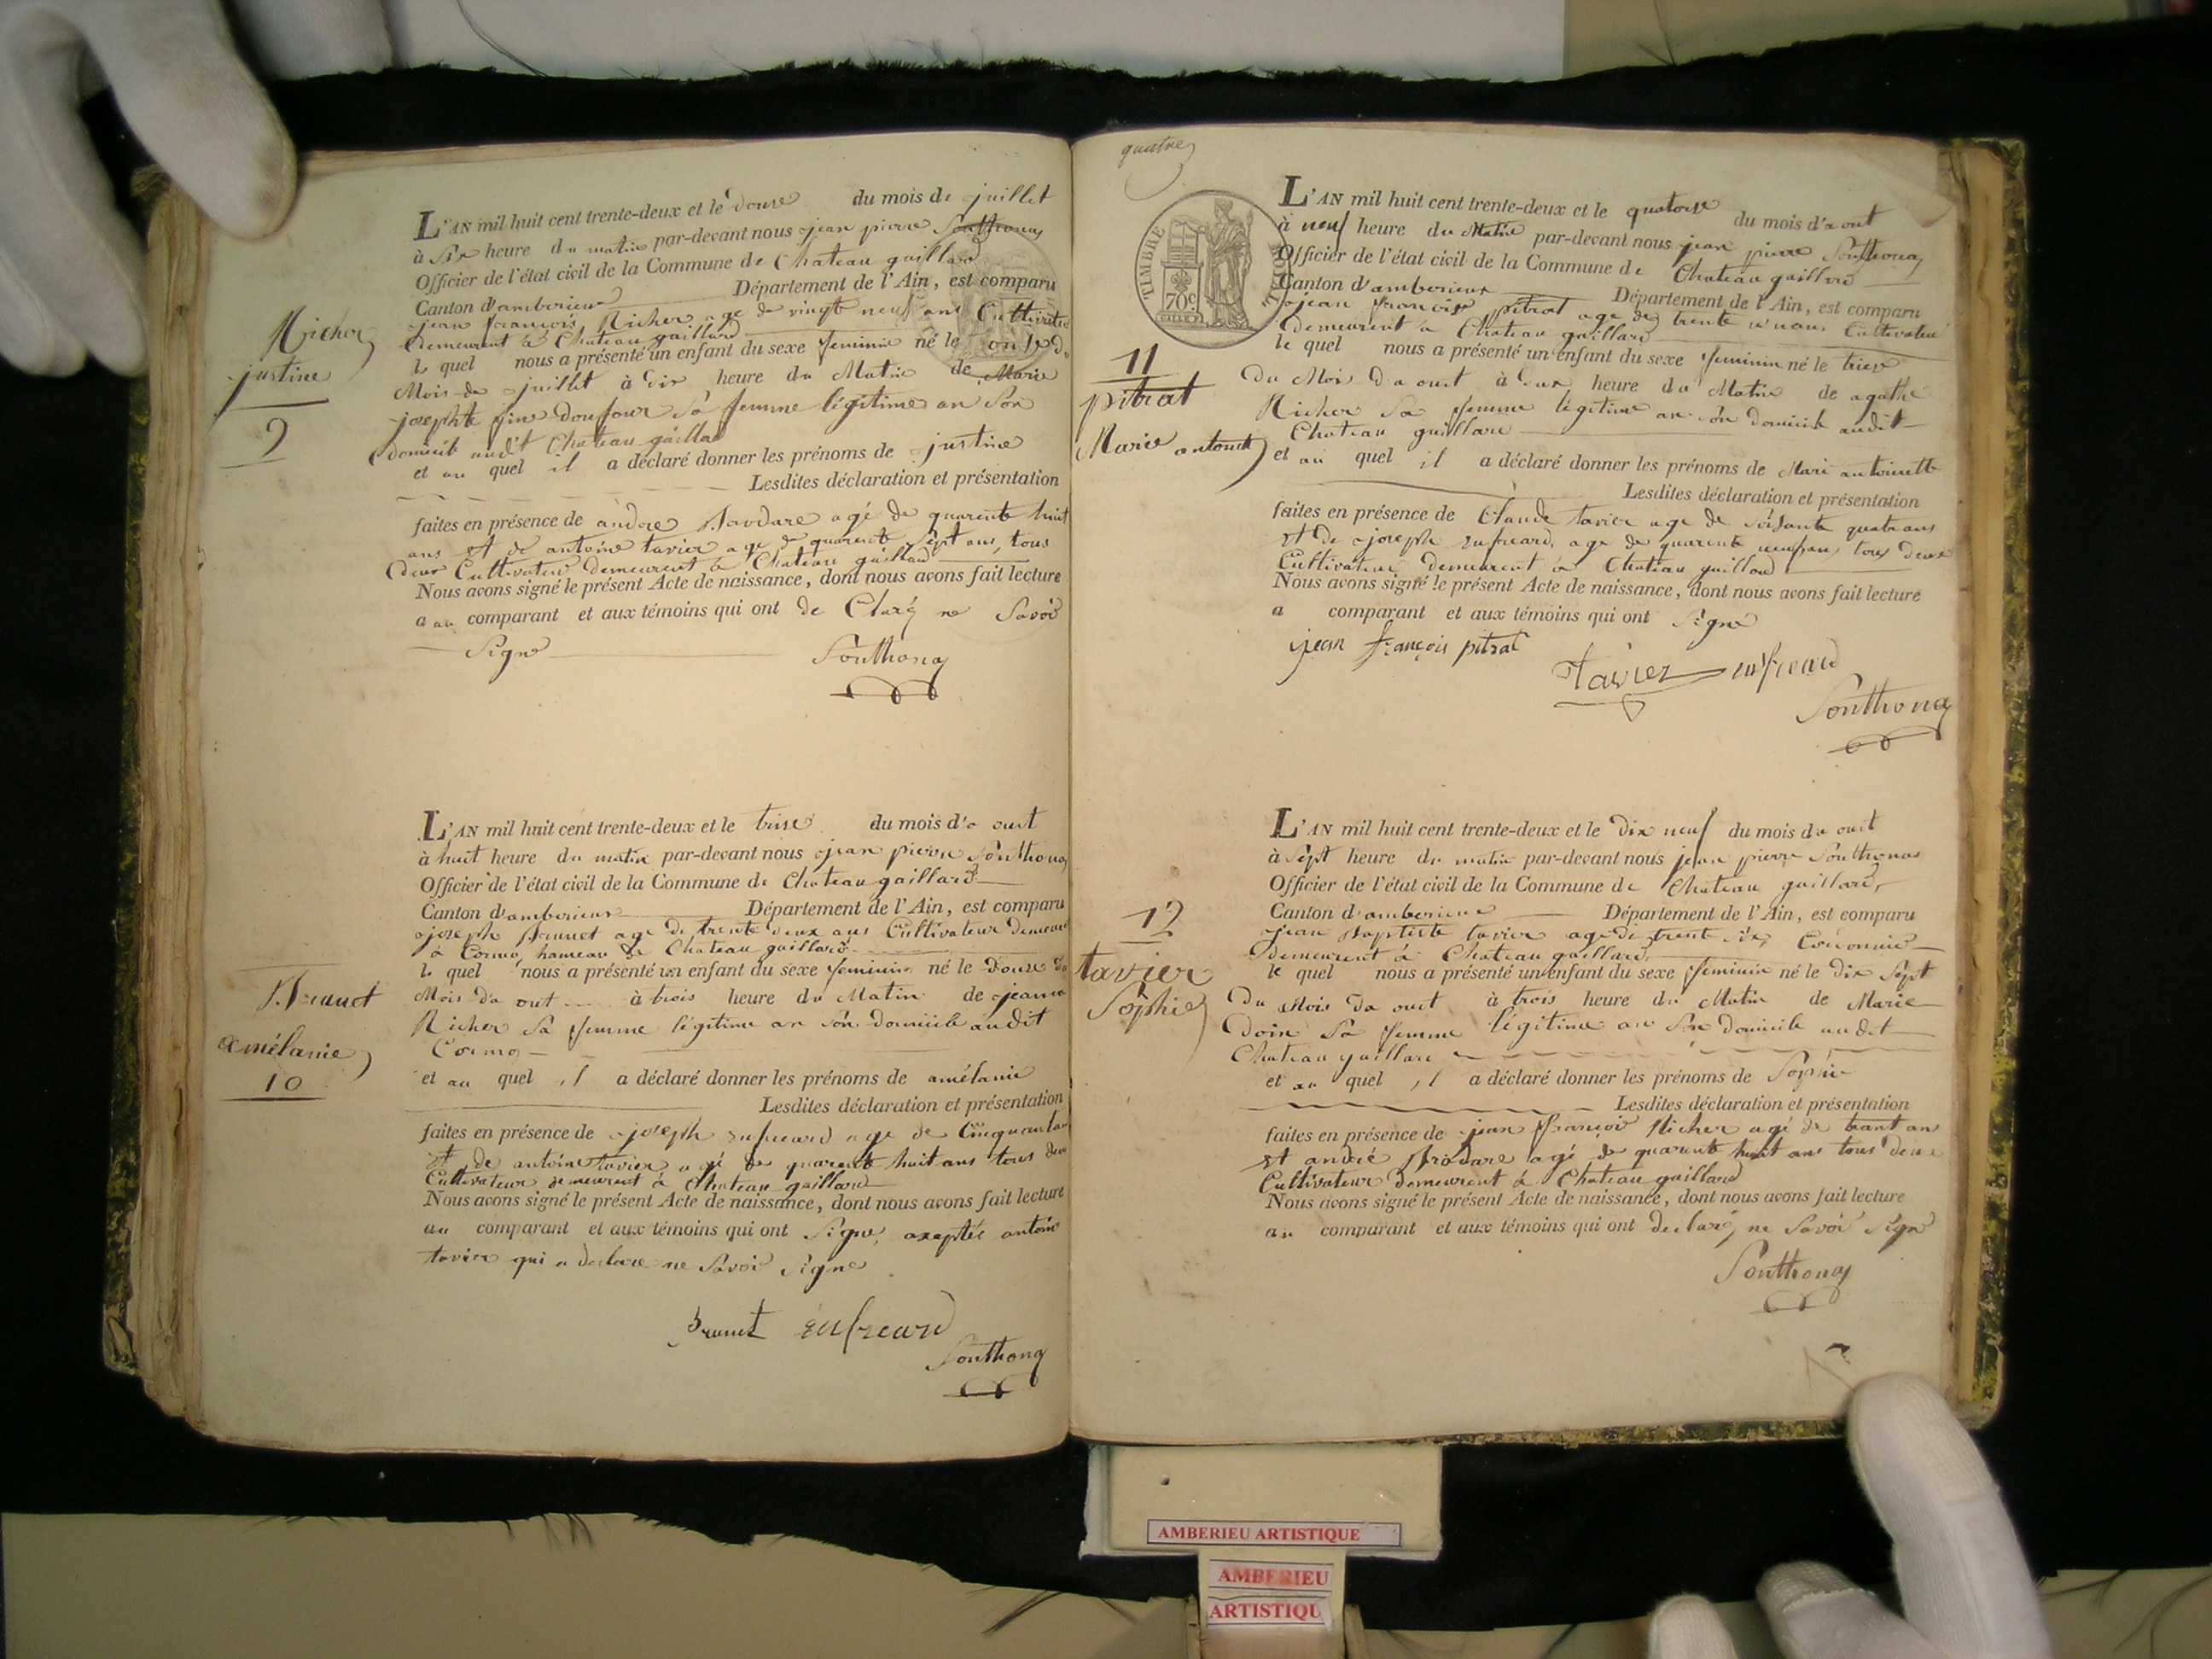 L'AN mil huit cent trente-deux et le douse du mois de juillet
à six heure du matin par-devant nous jean pierre Southonax
Officier de l'état civil de la Commune de Chateau gaillard
Canton d'amberieux Département de l'Ain, est comparu
jean françois Richer age de vingt neuf ans Cultivateur
demeurent à Chateau gaillard
le quel nous a présenté un enfant du sexe feminin né le onse du
Mois de juillet à dix heure du Matin de Marie
josephte fine doufour Sa femme légitime an Son
domicile audit Chateau gaillar
et au quel il a déclaré donner les prénoms de justine
Lesdites déclaration et présentation
faites en présence de andre age de quarente huit
ans et de antoine tavier age de quarente sept ans, tous
deux Cultivateur demeurent à Chateau gaillard
Nous avons signé le présent Acte de naissance, dont nous avons fait lecture
a au comparant et aux témoins qui ont de Claré ne Savoir
Signé
Southonax
Richer
justine
9
L'AN mil huit cent trente-deux et le trise du mois d'a oust
à huit heure du matin par-devant nous jean pierre Southonax
Officier de l'état civil de la Commune de Chateau gaillard
Canton d'amberieux Département de l'Ain, est comparu
joseph Brunet age de trente deux ans Cultivateur demeurent
à Cormo hameau de Chateau gaillard
le quel nous a présenté un enfant du sexe feminin né le douse du
Mois da out à trois heure du Matin de jeanne
Richer Sa femme légitime an Son domicile audit
Cormo
et au quel il a déclaré donner les prénoms de amélanie
Lesdites déclaration et présentation
faites en présence de joseph age de Cinquante
et de antoine tavier agé de quarente huit ans tous deux
Cultivateur demeurent à Chateau gaillard
Nous avons signé le présent Acte de naissance, dont nous avons fait lecture
au comparant et aux témoins qui ont Signé, axeptés antoine
tavier qui a declare ne Savoir Signe
Brunet
Southonax
Brunet
amélanie
10
quatre
TIMBRE ROYAL
70c
L'AN mil huit cent trente-deux et le quatorse du mois d'a out
à neuf heure du Matin par-devant nous jean pierre Southonax
Officier de l'état civil de la Commune de Chateau gaillard
Canton d'amberieux Département de l'Ain, est comparu
jean françois pitrat age de trente ans Cultivateur
demeurent à Chateau gaillard
le quel nous a présenté un enfant du sexe feminin né le trise
du Mois da oust à heure du Matin de agathe
Richer Sa femme légitime an Son domicile audit
Chateau gaillard
et au quel il a déclaré donner les prénoms de Mari antoinette
Lesdites déclaration et présentation
faites en présence de Claude tavier age de soisante quatre ans
et de joseph age de quarente neuf ans, tous deux
Cultivateur demeurent à Chateau gaillard
Nous avons signé le présent Acte de naissance, dont nous avons fait lecture
a comparant et aux témoins qui ont Signé
jean françois pitrat
tavier
Southonax
11
pitrat
Marie antoinette
L'AN mil huit cent trente-deux et le dix neuf du mois da oust
à sept heure du matin par-devant nous jean pierre Southonax
Officier de l'état civil de la Commune de Chateau gaillard
Canton d'amberieux Département de l'Ain, est comparu
jean Baptiste tavier age de trent six
demeurent à Chateau gaillard
le quel nous a présenté un enfant du sexe feminin né le dix sept
du Mois da oust à trois heure du Matin de Marie
Sa femme légitime an Son domicile audit
Chateau gaillard
et au quel il a déclaré donner les prénoms de Sophie
Lesdites déclaration et présentation
faites en présence de jean françois Richer agé de trant ans
et andré agé de quarente huit ans tous deux
Cultivateur demeurent à Chateau gaillard
Nous avons signé le présent Acte de naissance, dont nous avons fait lecture
au comparant et aux témoins qui ont declaré ne Savoir Signe
Southonax
12
tavier
Sophie
AMBERIEU ARTISTIQUE
AMBERIEU
ARTISTIQU